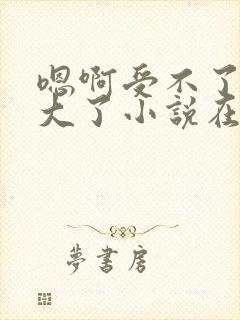 嗯啊受不了
大了小說在
夢書房